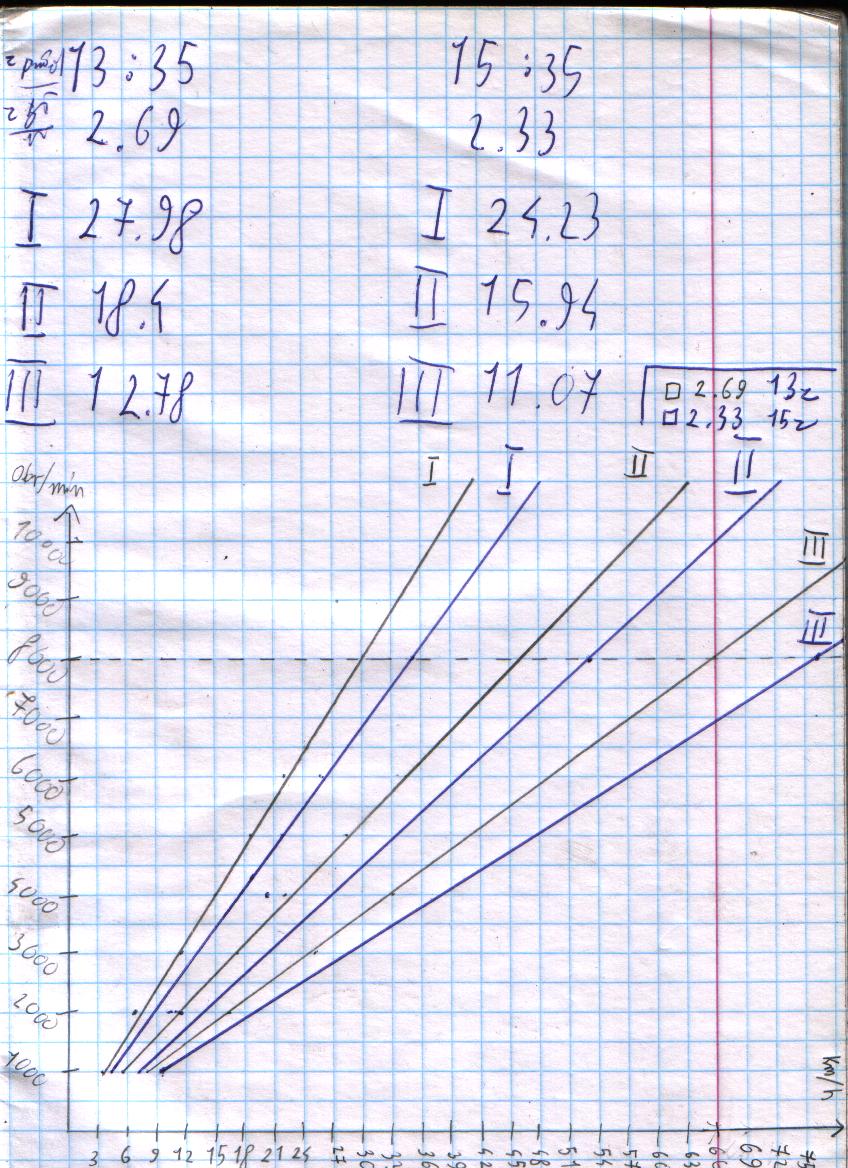 13:35 15:35
2.69 2.33
I 27.98 I 24.23
II 18.4 II 15.94
III 12.78 III 11.07
□ 2.69 13z
□ 2.33 15z
Obr/min
I I II II
III
III
10000
9000
8000
7000
6000
5000
4000
3000
2000
1000
Km/h
3 6 9 12 15 18 21 24 27 30 33 36 39 42 45 48 51 54 57 60 63 66 69 72 75